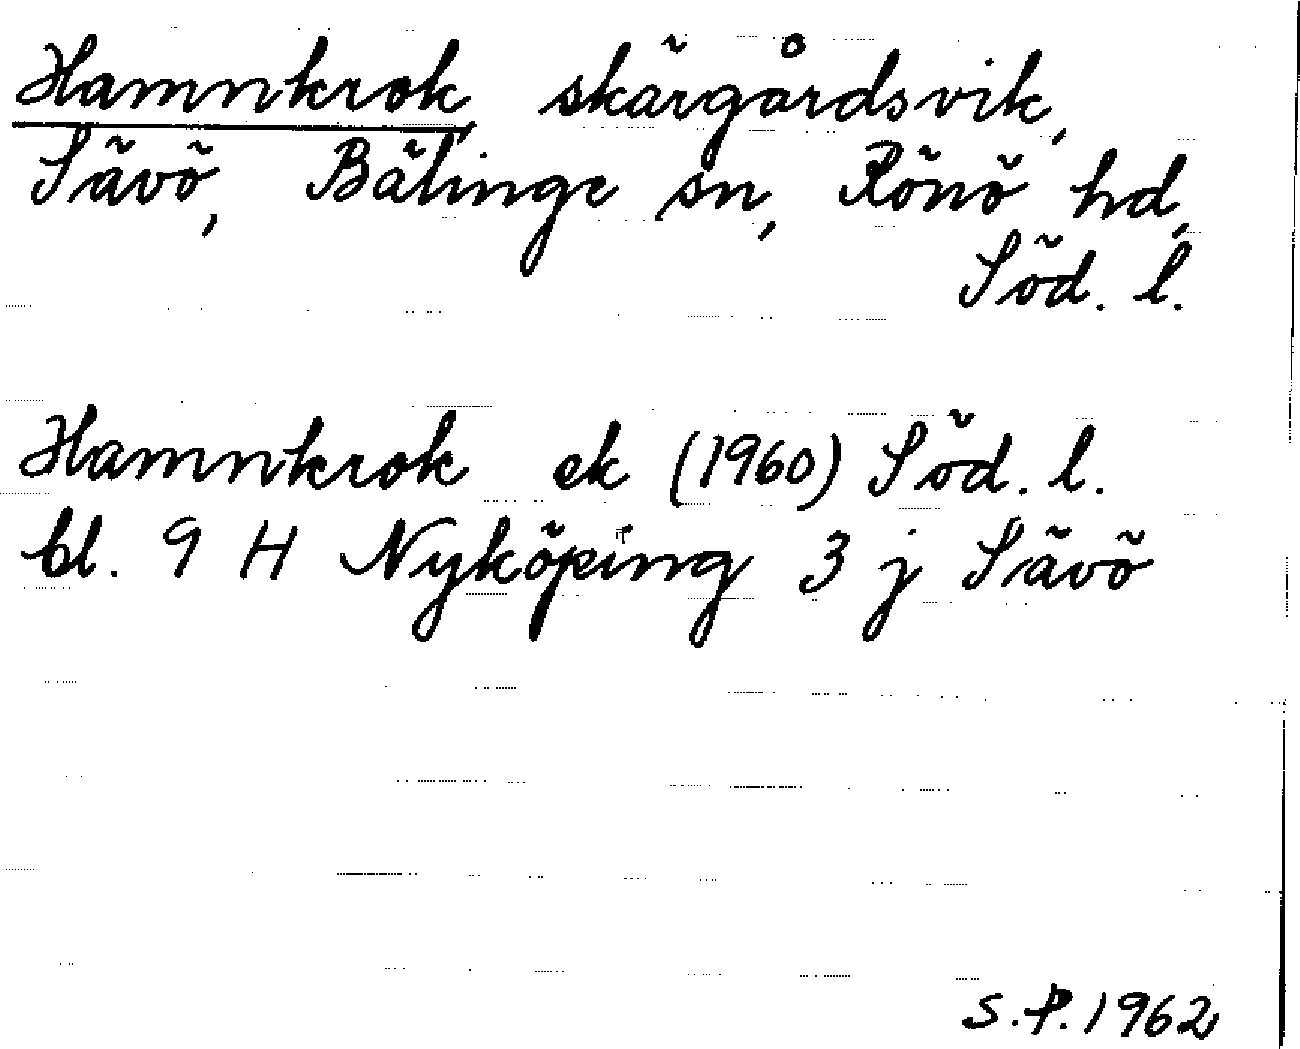 Hamnkrok, skärgårdsvik,
Sävö, Bälinge sn, Rönö hd,
Söd. l.
Hamnkrok ek (1960) Söd. l.
bl. 9 H Nyköping 3 j Sävö
S.P. 1962